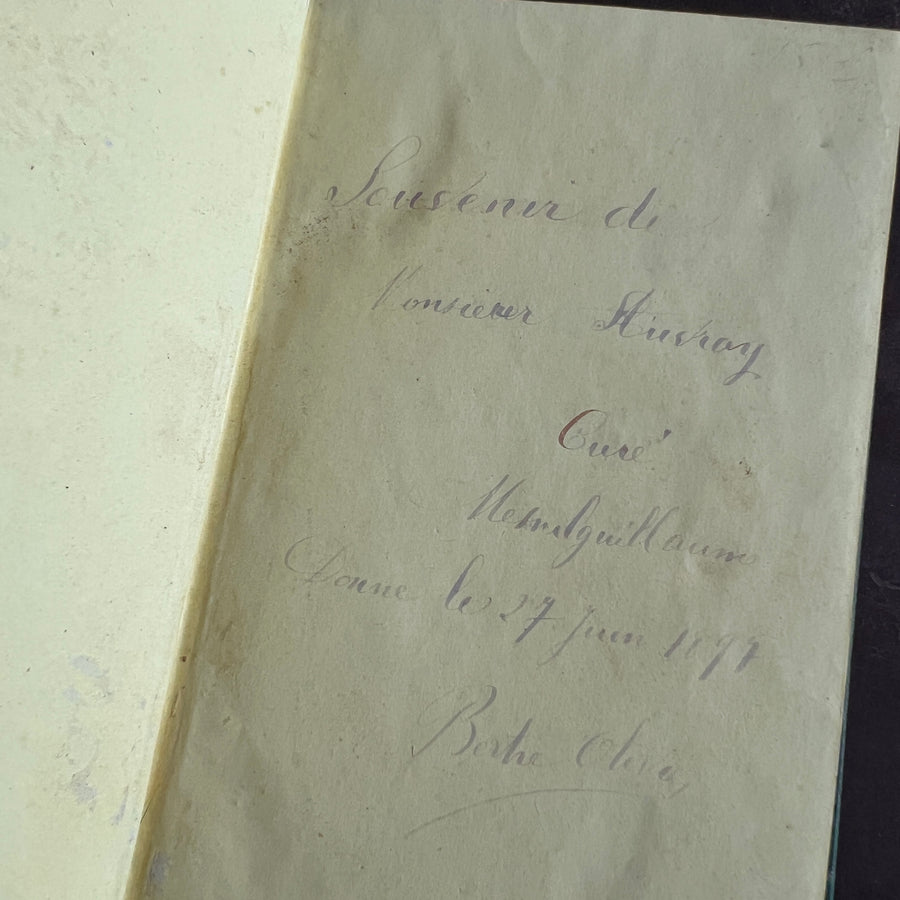 Souvenir de
Monsieur
Curé
Mesnilguillaume
Donné le 27 Juin 1897
Berthe